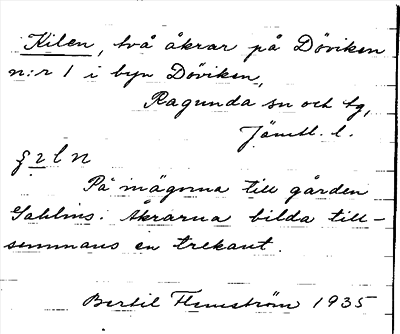 Kilen, två åkrar på Döviken
n:r 1 i byn Döviken,
Ragunda sn och tg,
Jämtl. l.
På inägorna till gården
Sahlins. Åkrarna bilda till-
sammans en trekant.
Bertil Flemström 1935